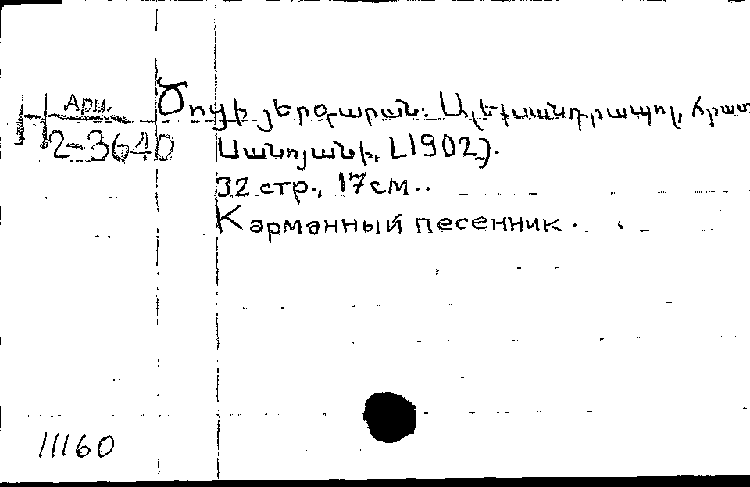 Арм.
2-3640
Ծոցի յերգարան. Ալեքսանդրապոլ, տրատ
Սանոյանի, [1902].
32 стр., 17 см..
Карманный песенник.
11160